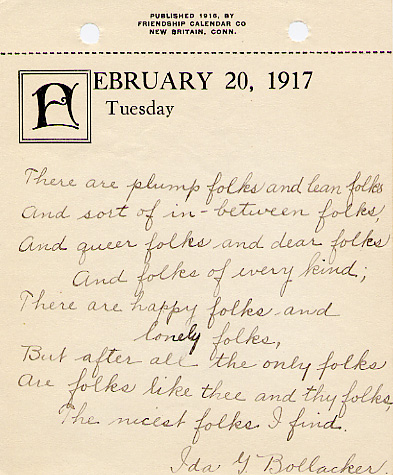 PUBLISHED 1916, BY
FRIENDSHIP CALENDAR CO
NEW BRITAIN, CONN.
FEBRUARY 20, 1917
Tuesday
There are plump folks and lean folks
And sort of in-between folks,
And queer folks and dear folks
And folks of every kind;
There are happy folks and
lonely folks,
But after all the only folks
Are folks like thee and thy folks,
The nicest folks I find.
Ida G. Bollacker.